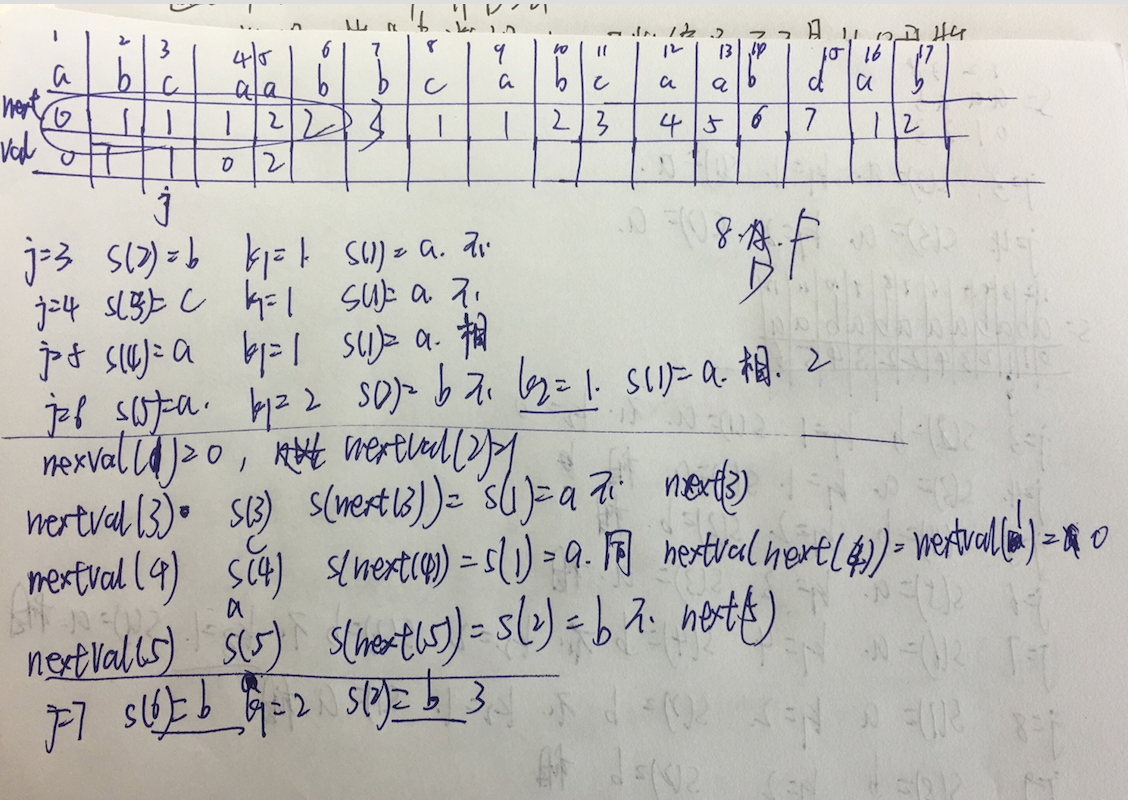 1 2 3 4 5 6 7 8 9 10 11 12 13 14 15 16 17
a b c a a b b c a b c a a b d a b
next 0 1 1 1 2 2 3 1 1 2 3 4 5 6 7 1 2
val 0 1 1 0 2
j
j=3 s(2)=b k1=1. s(1)=a. 不.
8. A. F
D
j=4 s(3)=c k1=1 s(1)=a. 不.
j=5 s(4)=a k1=1 s(1)=a. 相
j=6 s(5)=a. k1=2 s(2)=b 不. k2=1. s(1)=a. 相. 2
nexval(1)=0, nextval(2)=1
nextval(3) s(3) s(next(3))=s(1)=a 不. next(3)
c
nextval(4) s(4) s(next(4))=s(1)=a. 同 nextval(next(4))=nextval(1)=0
a
nextval(5) s(5) s(next(5))=s(2)=b 不. next(5)
j=7 s(6)=b k1=2 s(2)=b 3